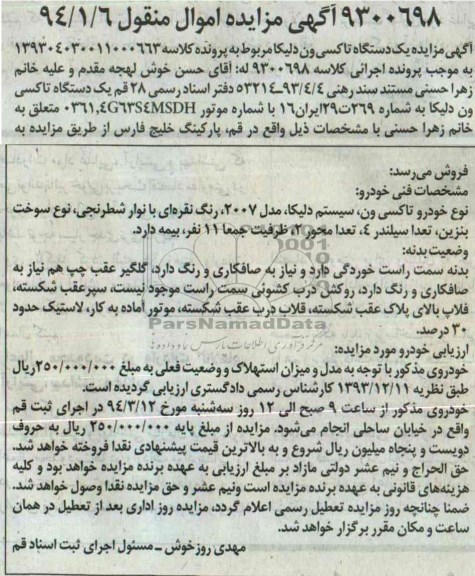 ۹۳۰۰۶۹۸ آگهی مزایده اموال منقول ۹۴/۱/۶
آگهی مزایده یک دستگاه تاکسی ون دلیکا مربوط به پرونده کلاسه ۱۳۹۳۰۴۰۳۰۰۱۱۰۰۰۶۶۳
به موجب پرونده اجرائی کلاسه ۹۳۰۰۶۹۸ له: آقای حسن خوش لهجه مقدم و علیه خانم
زهرا حسنی مستند سند رهنی ۹۳/۴/۴-۳۲۱۴ دفتر اسناد رسمی ۲۸ قم یک دستگاه تاکسی
ون دلیکا به شماره ۲۶۹ت۲۹ایران۱۶ با شماره موتور ۰۳۶۱،۴G۶۳S۴MSDH متعلق به
خانم زهرا حسنی با مشخصات ذیل واقع در قم، پارکینگ خلیج فارس از طریق مزایده به
فروش می‌رسد:
مشخصات فنی خودرو:
نوع خودرو تاکسی ون، سیستم دلیکا، مدل ۲۰۰۷، رنگ نقره‌ای با نوار شطرنجی، نوع سوخت
بنزین، تعدا سیلندر ۴، تعدا محور ۲، ظرفیت جمعا ۱۱ نفر، بیمه دارد.
وضعیت بدنه:
بدنه سمت راست خوردگی دارد و نیاز به صافکاری و رنگ دارد، گلگیر عقب چپ هم نیاز به
صافکاری و رنگ دارد، روکش درب کشوئی سمت راست موجود نیست، سپر عقب شکسته،
قلاب بالای پلاک عقب شکسته، قلاب درب عقب شکسته، موتور آماده به کار، لاستیک حدود
۳۰ درصد.
ParsNamadData
مرکز فرآوری اطلاعات پارس نماد داده‌ها
ارزیابی خودرو مورد مزایده:
خودروی مذکور با توجه به مدل و میزان استهلاک و وضعیت فعلی به مبلغ ۲۵۰/۰۰۰/۰۰۰ریال
طبق نظریه ۱۳۹۳/۱۲/۱۱ کارشناس رسمی دادگستری ارزیابی گردیده است.
خودروی مذکور از ساعت ۹ صبح الی ۱۲ روز سه‌شنبه مورخ ۹۴/۳/۱۲ در اجرای ثبت قم
واقع در خیابان ساحلی انجام می‌شود. مزایده از مبلغ پایه ۲۵۰/۰۰۰/۰۰۰ ریال به حروف
دویست و پنجاه میلیون ریال شروع و به بالاترین قیمت پیشنهادی نقدا فروخته خواهد شد.
حق الحراج و نیم عشر دولتی مازاد بر مبلغ ارزیابی به عهده برنده مزایده خواهد بود و کلیه
هزینه‌های قانونی به عهده برنده مزایده است ونیم عشر و حق مزایده نقدا وصول خواهد شد.
ضمنا چنانچه روز مزایده تعطیل رسمی اعلام گردد، مزایده روز اداری بعد از تعطیل در همان
ساعت و مکان مقرر برگزار خواهد شد.
مهدی روزخوش ــ مسئول اجرای ثبت اسناد قم